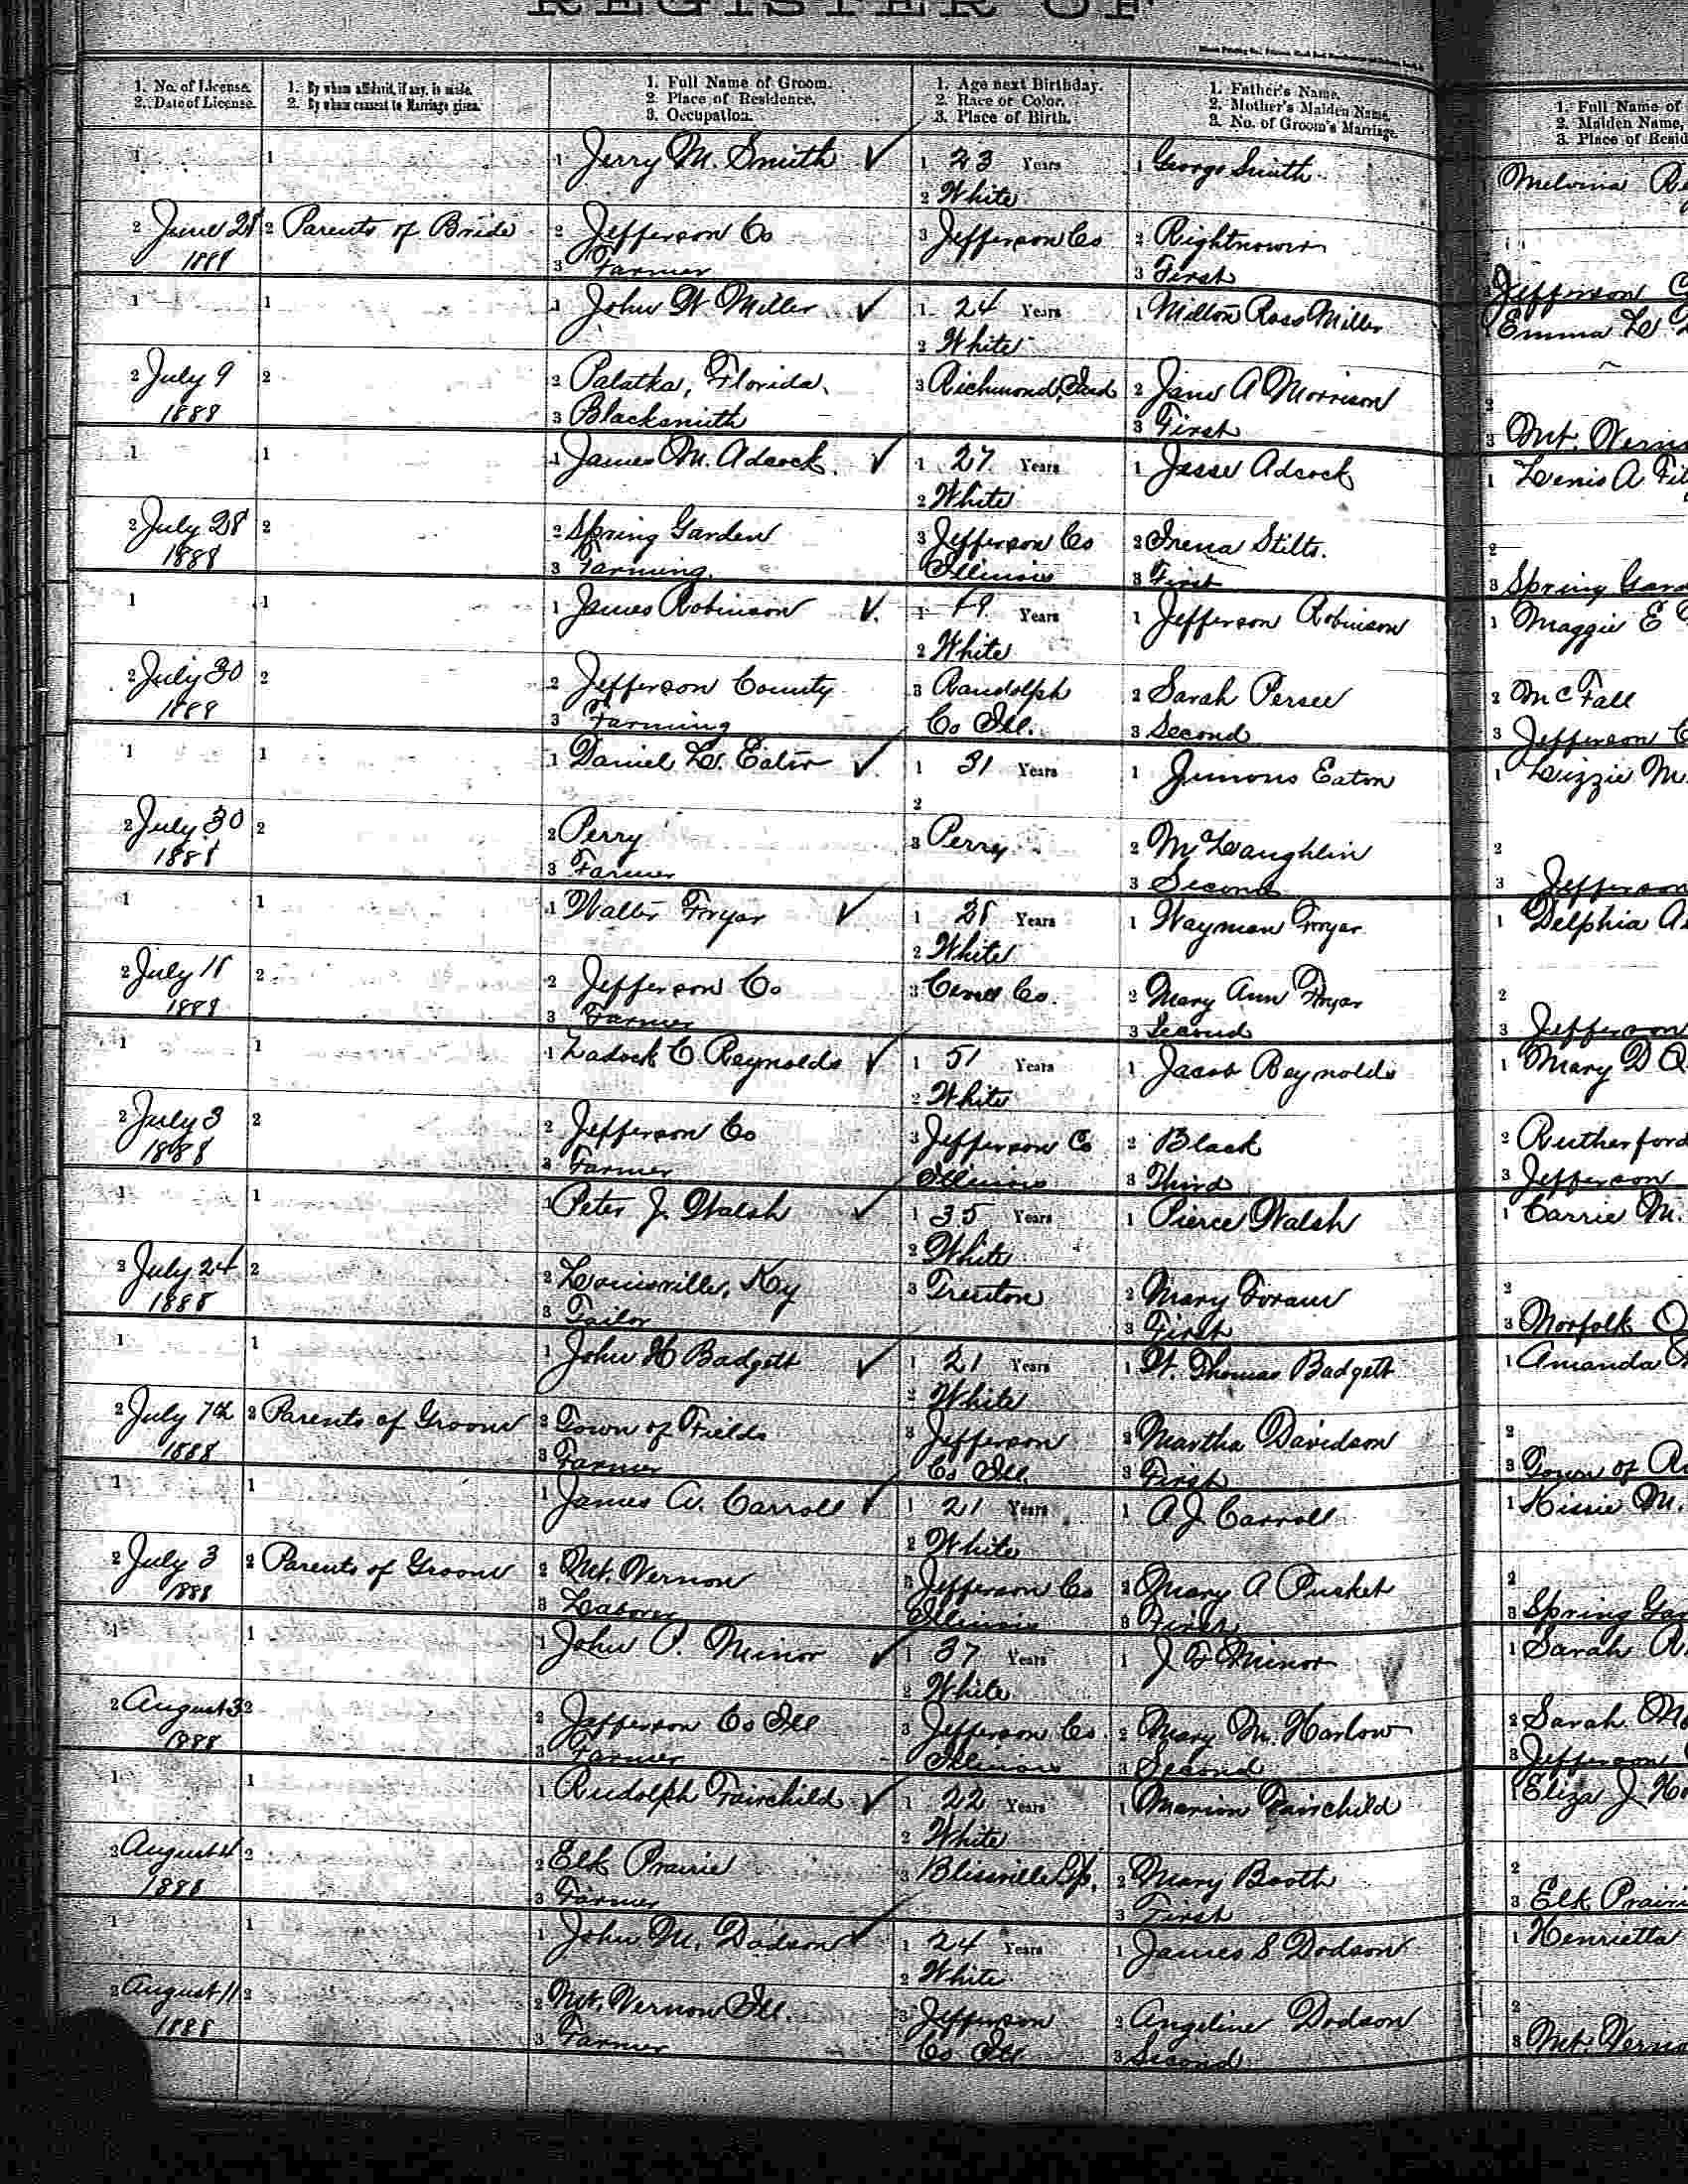 REGISTER OF
1. No. of License.
2. Date of License.
1. By whom affidavit, if any, is made.
2. By whom consent to Marriage given.
1. Full Name of Groom.
2. Place of Residence.
3. Occupation.
1. Age next Birthday.
2. Race or Color.
3. Place of Birth.
1. Father's Name.
2. Mother's Maiden Name.
3. No. of Groom's Marriage.
1. Full Name of
2. Maiden Name,
3. Place of Resid
1
1
1 Jerry M. Smith ✓
1 23 Years
1 George Smith
Melvina
2 White
2 June 28
2 Parents of Bride
2 Jefferson Co
3 Jefferson Co
2 Rightnowir
1888
3 Farmer
3 First
Jefferson C
1
1
1 John W. Miller ✓
1 24 Years
1 Milton Ross Miller
Emma L
2 White
2 July 9
2
2 Palatka, Florida,
3 Richmond, Ind
2 Jane A Morrison
1888
3 Blacksmith
3 First
3 Mt. Verno
1
1
1 James M. Adcock ✓
1 27 Years
1 Jesse Adcock
1 Lenis A
2 White
2 July 28
2
2 Spring Garden
3 Jefferson Co
2 Irena Stilts.
2
1888
3 Farming.
Illinois
3 First
3 Spring Gard
1
1
1 James Robinson ✓
1 49 Years
1 Jefferson Robinson
1 Maggie E
2 White
2 July 30
2
2 Jefferson County
3 Randolph
2 Sarah Persee
2 McFall
1888
3 Farming
Co Ill.
3 Second
3 Jefferson C
1
1
1 Daniel L. Eaton ✓
1 31 Years
1 Jimons Eaton
1 Lizzie M.
2
2 July 30
2
2 Perry
3 Perry
2 McLaughlin
2
1888
3 Farmer
3 Second
3 Jefferson
1
1
1 Walter Fryar ✓
1 28 Years
1 Wayman Fryar
1 Delphia A
2 White
2 July 18
2
2 Jefferson Co
3 Co.
2 Mary Ann Fryar
2
1888
3 Farmer
3 Second
3 Jefferson
1
1
1 Zadock C Reynolds ✓
1 51 Years
1 Jacob Reynolds
1 Mary D
2 White
2 July 3
2
2 Jefferson Co
3 Jefferson Co
2 Black
2 Rutherford
1888
3 Farmer
Illinois
3 Third
3 Jefferson
1
1
1 Peter J. Walsh ✓
1 35 Years
1 Pierce Walsh
1 Carrie M.
2 White
2 July 24
2
2 Louisville, Ky
3 Trenton
2 Mary Foram
2
1888
3 Tailor
3 First
3 Norfolk
1
1
1 John H Badgett ✓
1 21 Years
1 W. Thomas Badgett
1 Amanda
2 White
2 July 7th
2 Parents of Groom
2 Town of Fields
3 Jefferson
2 Martha Davidson
2
1888
3 Farmer
Co Ill.
3 First
3 Town of
1
1
1 James A. Carroll ✓
1 21 Years
1 A J. Carroll
1 Kissie M.
2 White
2 July 3
2 Parents of Groom
2 Mt. Vernon
3 Jefferson Co
2 Mary A Pusket
2
1888
3 Laborer
Illinois
3 First
3 Spring Gar
1
1
1 John P. Minor ✓
1 37 Years
1 J F Minor
1 Sarah
2 White
2 August 3
2
2 Jefferson Co Ill
3 Jefferson Co
2 Mary M. Harlow
2 Sarah
1888
3 Farmer
Illinois
3 Second
3 Jefferson
1
1
1 Rudolph Fairchild ✓
1 22 Years
1 Marion Fairchild
1 Eliza J
2 White
2 August 4
2
2 Elk Prairie
3 Blissville Tp.
2 Mary Booth
2
1888
3 Farmer
3 First
3 Elk Prairi
1
1
1 John M. Dodson ✓
1 24 Years
1 James S Dodson
1 Henrietta
2 White
2 August 11
2
2 Mt. Vernon Ill.
3 Jefferson
2 Angeline Dodson
2
1888
3 Farmer
Co Ill
3 Second
3 Mt. Verno